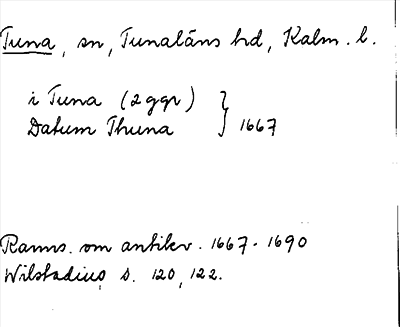 Tuna, sn, Tunaläns hd, Kalm. l.
i Tuna (2 ggr)
Datum Thuna } 1667
Ranns. om antikv. 1667-1690
Wilstadius s. 120, 122.